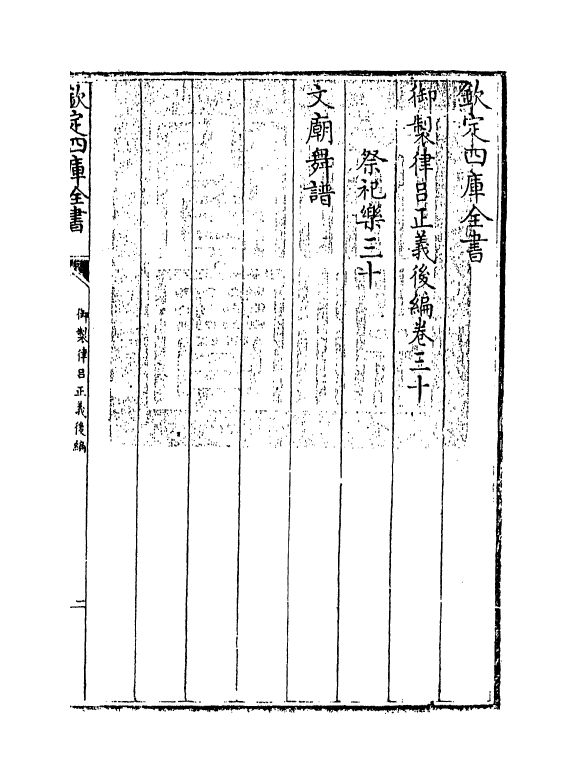 欽定四庫全書
御製律呂正義後編卷三十
祭祀樂三十
文廟舞譜
欽定四庫全書
御製律呂正義後編
二